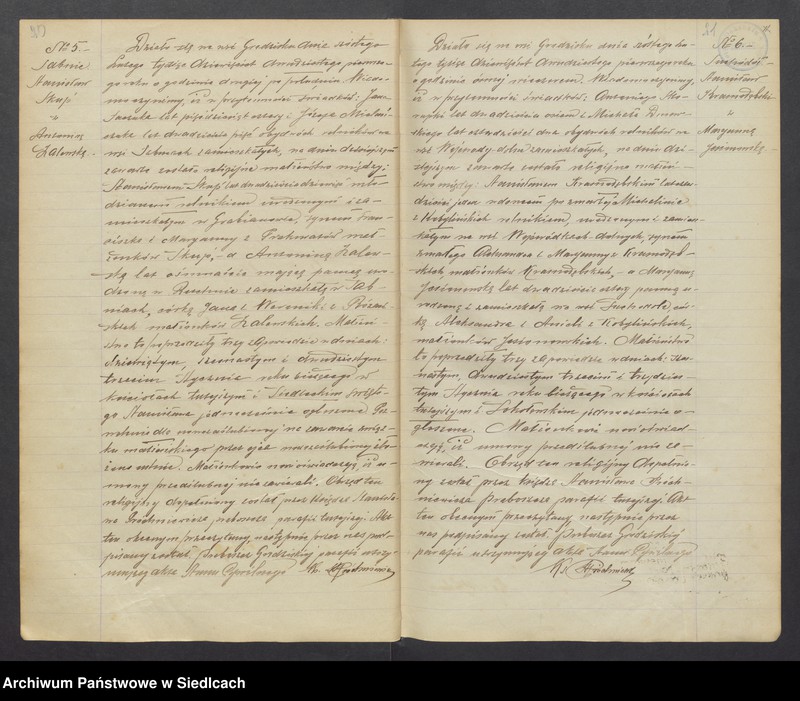 20
№ 5.
Sabnie
Stanisław
Skup
i
Antonina
Zalewska
Działo się na wsi Grodzisku dnia szóstego
lutego tysiąc dziewięćset dwudziestego pierwsze-
go roku o godzinie drugiej po południu. Wiado-
mo czynimy, iż w przytomności świadków: Jana
lat pięćdziesiąt cztery i Józefa
lat dwadzieścia pięć obydwóch rolników na
wsi Sabniach zamieszkałych, na dniu dzisiejszym
zawarte zostało religijne małżeństwo między:
Stanisławem Skup lat dwadzieścia dziewięć mło-
dzianem rolnikiem urodzonym i za-
mieszkałym w Grabianowie, synem Fran-
ciszka i Maryanny z małż-
żonków Skup, a Antoniną Zalew-
ską lat ośmnaście mającą panną uro-
dzoną w zamieszkałą w Sab-
niach, córką Jana i Weroniki z
małżonków Zalewskich. Małżeń-
stwo to poprzedziły trzy zapowiedzie w dniach:
dziewiątym, szesnastym i dwudziestym
trzecim Stycznia roku bieżącego w
kościołach tutejszym i Siedleckim święte-
go Stanisława jednocześnie ogłoszone. Poz-
wolenie dla nowozaślubionej na zawarcie związ-
ku małżeńskiego przez ojca nowozaślubionej zło-
żone ustnie. Małżonkowie nowi oświadczają, iż u-
mowy przedślubnej nie zawierali. Obrzęd ten
religijny dopełniony został przez księdza Stanisła-
wa proboszcza parafii tutejszej. Akt
ten obecnym przeczytany, następnie przez nas pod-
pisany został. Proboszcz Grodziskiej parafii utrzy-
mujący akta Stanu Cywilnego Ks.
21
№ 6.
Stanisław
Krasnodębski
i
Maryanna
Jasionowska
Działo się na wsi Grodzisku dnia szóstego lu-
tego tysiąc dziewięćset dwudziestego pierwszego roku
o godzinie ósmej wieczorem. Wiadomo czynimy,
iż w przytomności świadków: Antoniego
lat dwadzieścia ośm i Michała
lat czterdzieści dwa obydwóch rolników na
wsi zamieszkałych, na dniu dzi-
siejszym zawarte zostało religijne małżeń-
stwo między: Stanisławem Krasnodębskim lat
dzieści jeden wdowcem po zmarłej Michalinie
z Kobylińskich rolnikiem, urodzonym i zamiesz-
kałym na wsi Wojewódkach dolnych, synem
zmarłego Aleksandra i Maryanny z Krasnodęb-
skich małżonków Krasnodębskich, a Maryanną
Jasionowską lat dwadzieścia cztery panną u-
rodzoną i zamieszkałą na wsi cór-
ką Aleksandra i Anieli z Kobylińskich,
małżonków Jasionowskich. Małżeństwo
to poprzedziły trzy zapowiedzie w dniach: szes-
nastym, dwudziestym trzecim i trzydzies-
tym Stycznia roku bieżącego w kościołach
tutejszym i Sokołowskim jednocześnie o-
głoszone. Małżonkowie nowi oświad-
czają, iż umowy przedślubnej nie za-
wierali. Obrzęd ten religijny dopełnio-
ny został przez księdza Stanisława
proboszcza parafii tutejszej. Akt
ten obecnym przeczytany, następnie przez
nas podpisany został. Proboszcz Grodziskiej
parafii utrzymujący akta Stanu Cywilnego
Ks.
Archiwum Państwowe w Siedlcach